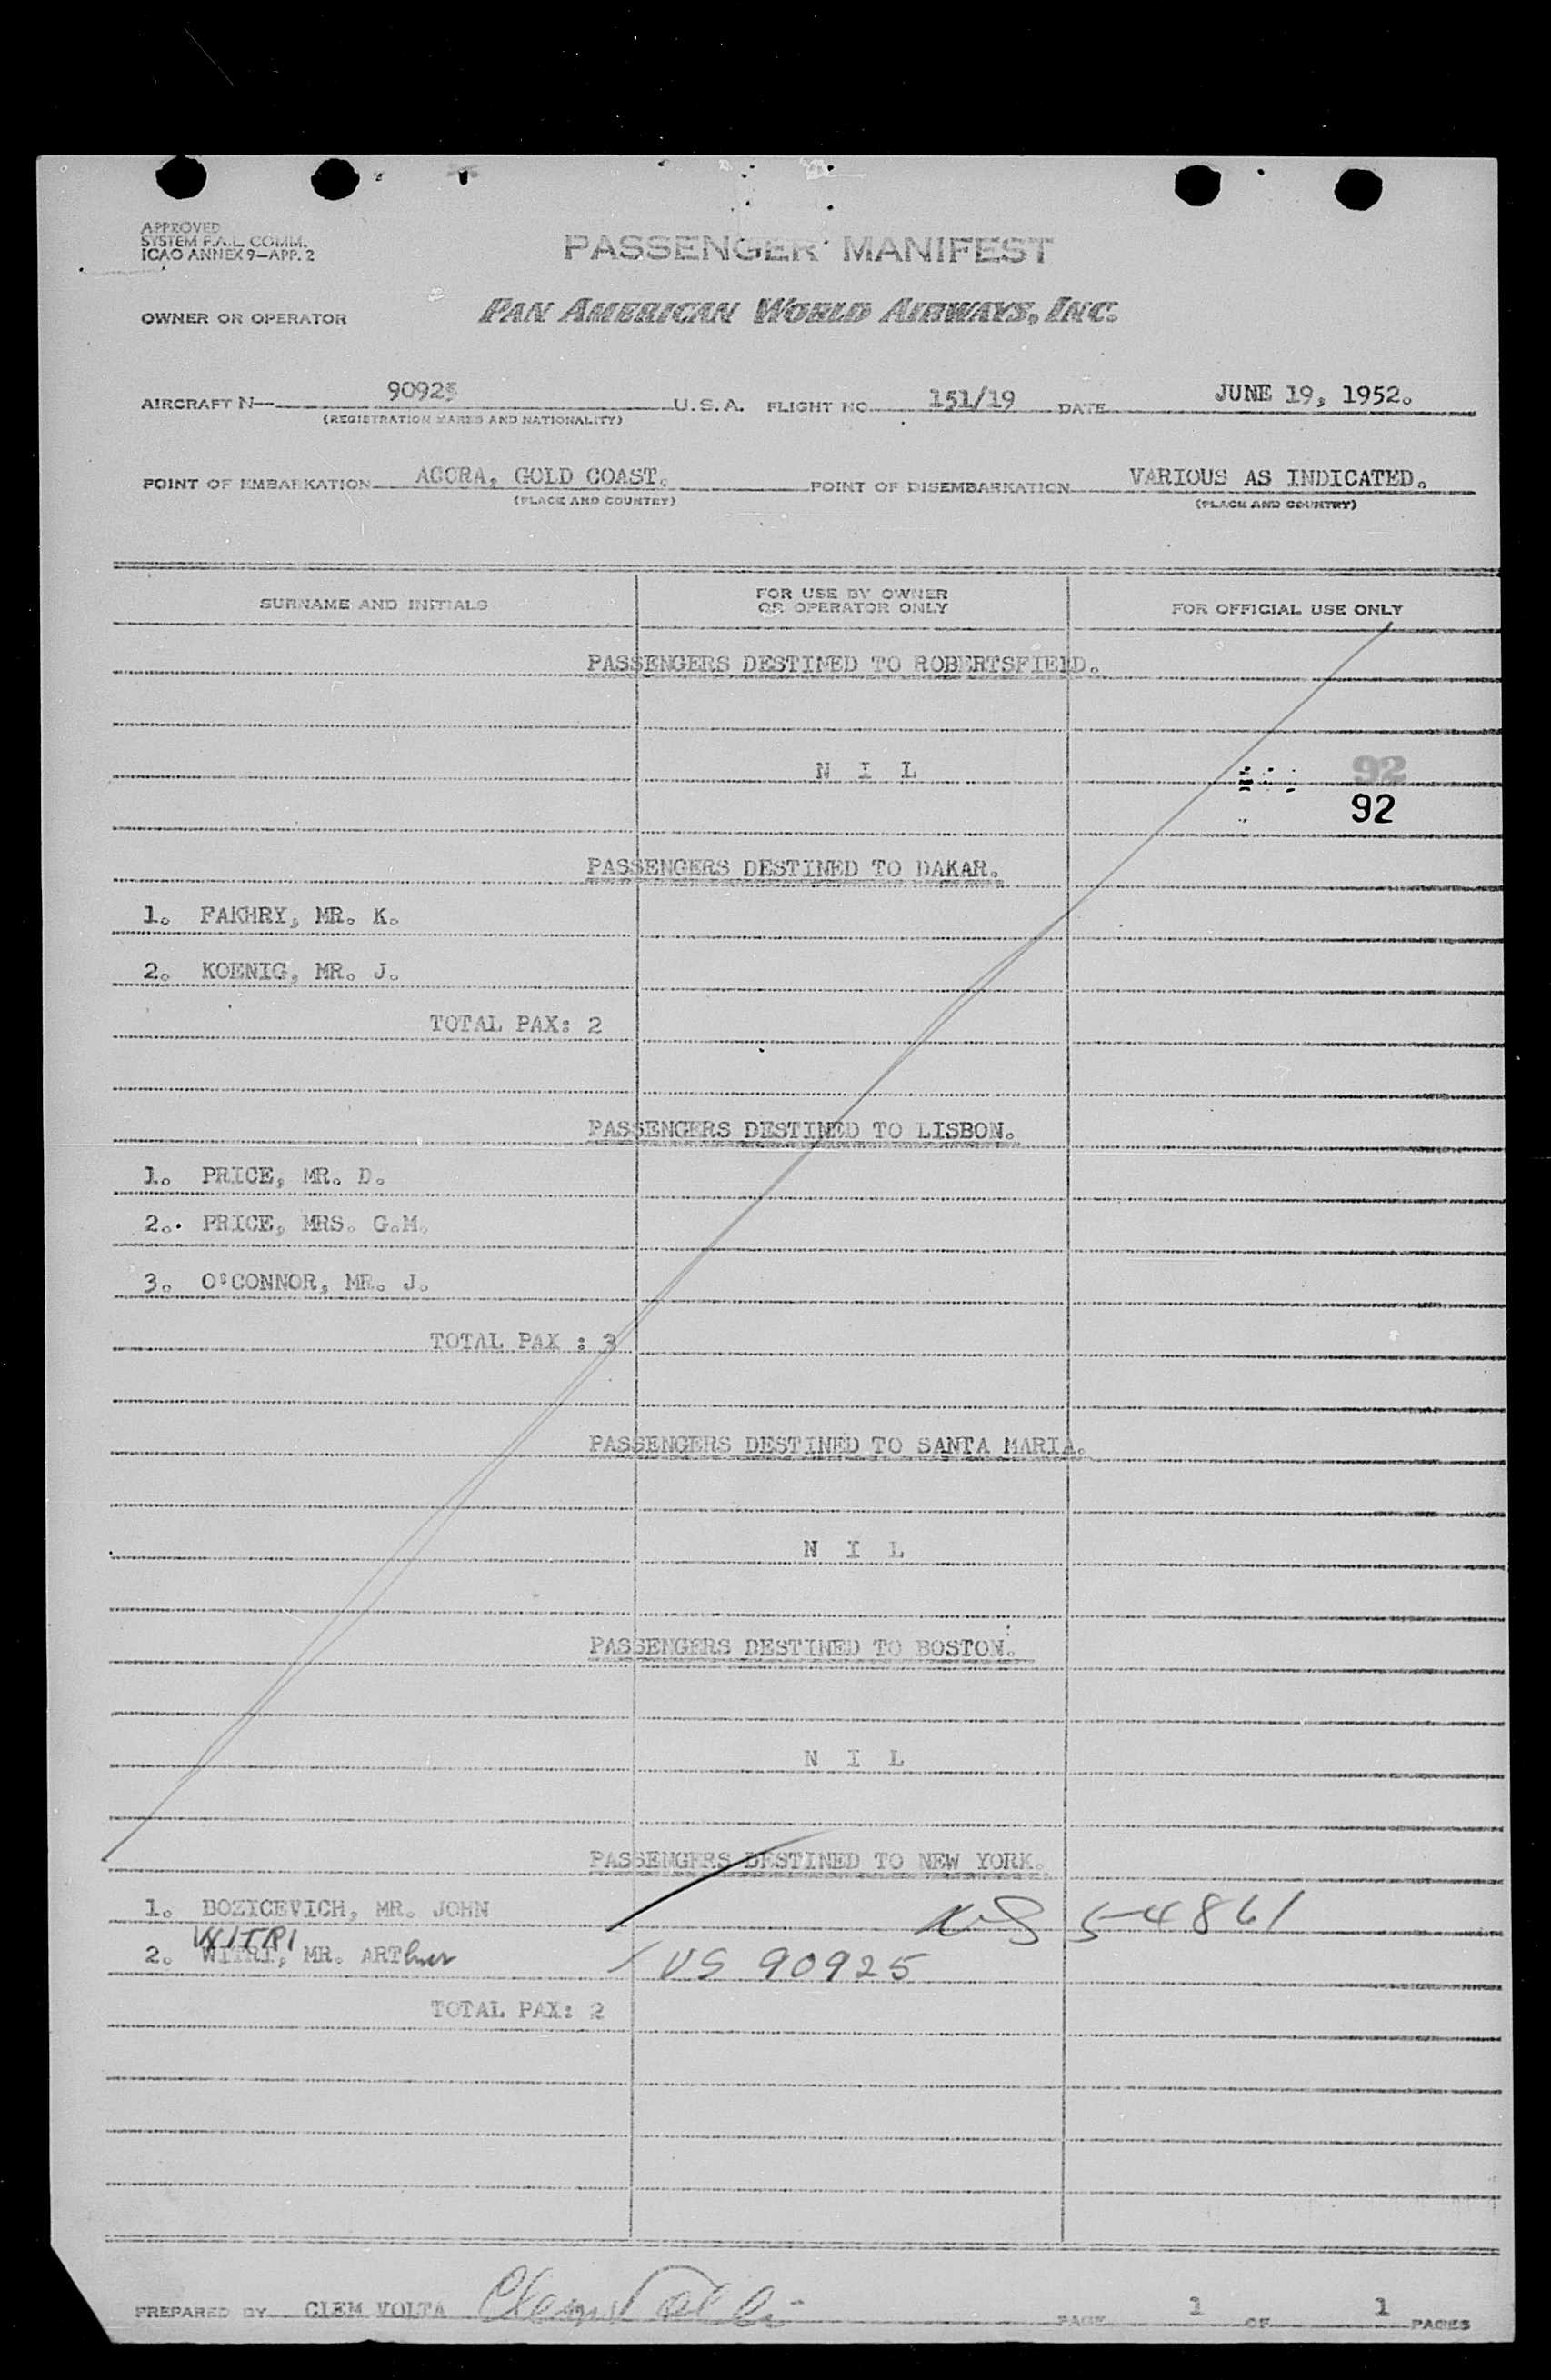 APPROVED
SYSTEM F.A.L. COMM.
ICAO ANNEX 9—APP. 2
PASSENGER MANIFEST
OWNER OR OPERATOR PAN AMERICAN WORLD AIRWAYS, INC.
AIRCRAFT N— 90925 U.S.A. FLIGHT NO. 151/19 DATE JUNE 19, 1952.
(REGISTRATION MARKS AND NATIONALITY)
POINT OF EMBARKATION ACCRA, GOLD COAST. POINT OF DISEMBARKATION VARIOUS AS INDICATED.
(PLACE AND COUNTRY) (PLACE AND COUNTRY)
SURNAME AND INITIALS FOR USE BY OWNER OR OPERATOR ONLY FOR OFFICIAL USE ONLY
PASSENGERS DESTINED TO ROBERTSFIELD.
N I L 92
92
PASSENGERS DESTINED TO DAKAR.
1. FAKHRY, MR. K.
2. KOENIG, MR. J.
TOTAL PAX: 2
PASSENGERS DESTINED TO LISBON.
1. PRICE, MR. D.
2.. PRICE, MRS. G.M.
3. O'CONNOR, MR. J.
TOTAL PAX : 3
PASSENGERS DESTINED TO SANTA MARIA.
N I L
PASSENGERS DESTINED TO BOSTON.
N I L
PASSENGERS DESTINED TO NEW YORK.
1. BOZICEVICH, MR. JOHN 54861
WITRI
2. WITRI, MR. ARThur US 90925
TOTAL PAX: 2
PREPARED BY CLEM VOLTA PAGE 1 OF 1 PAGES